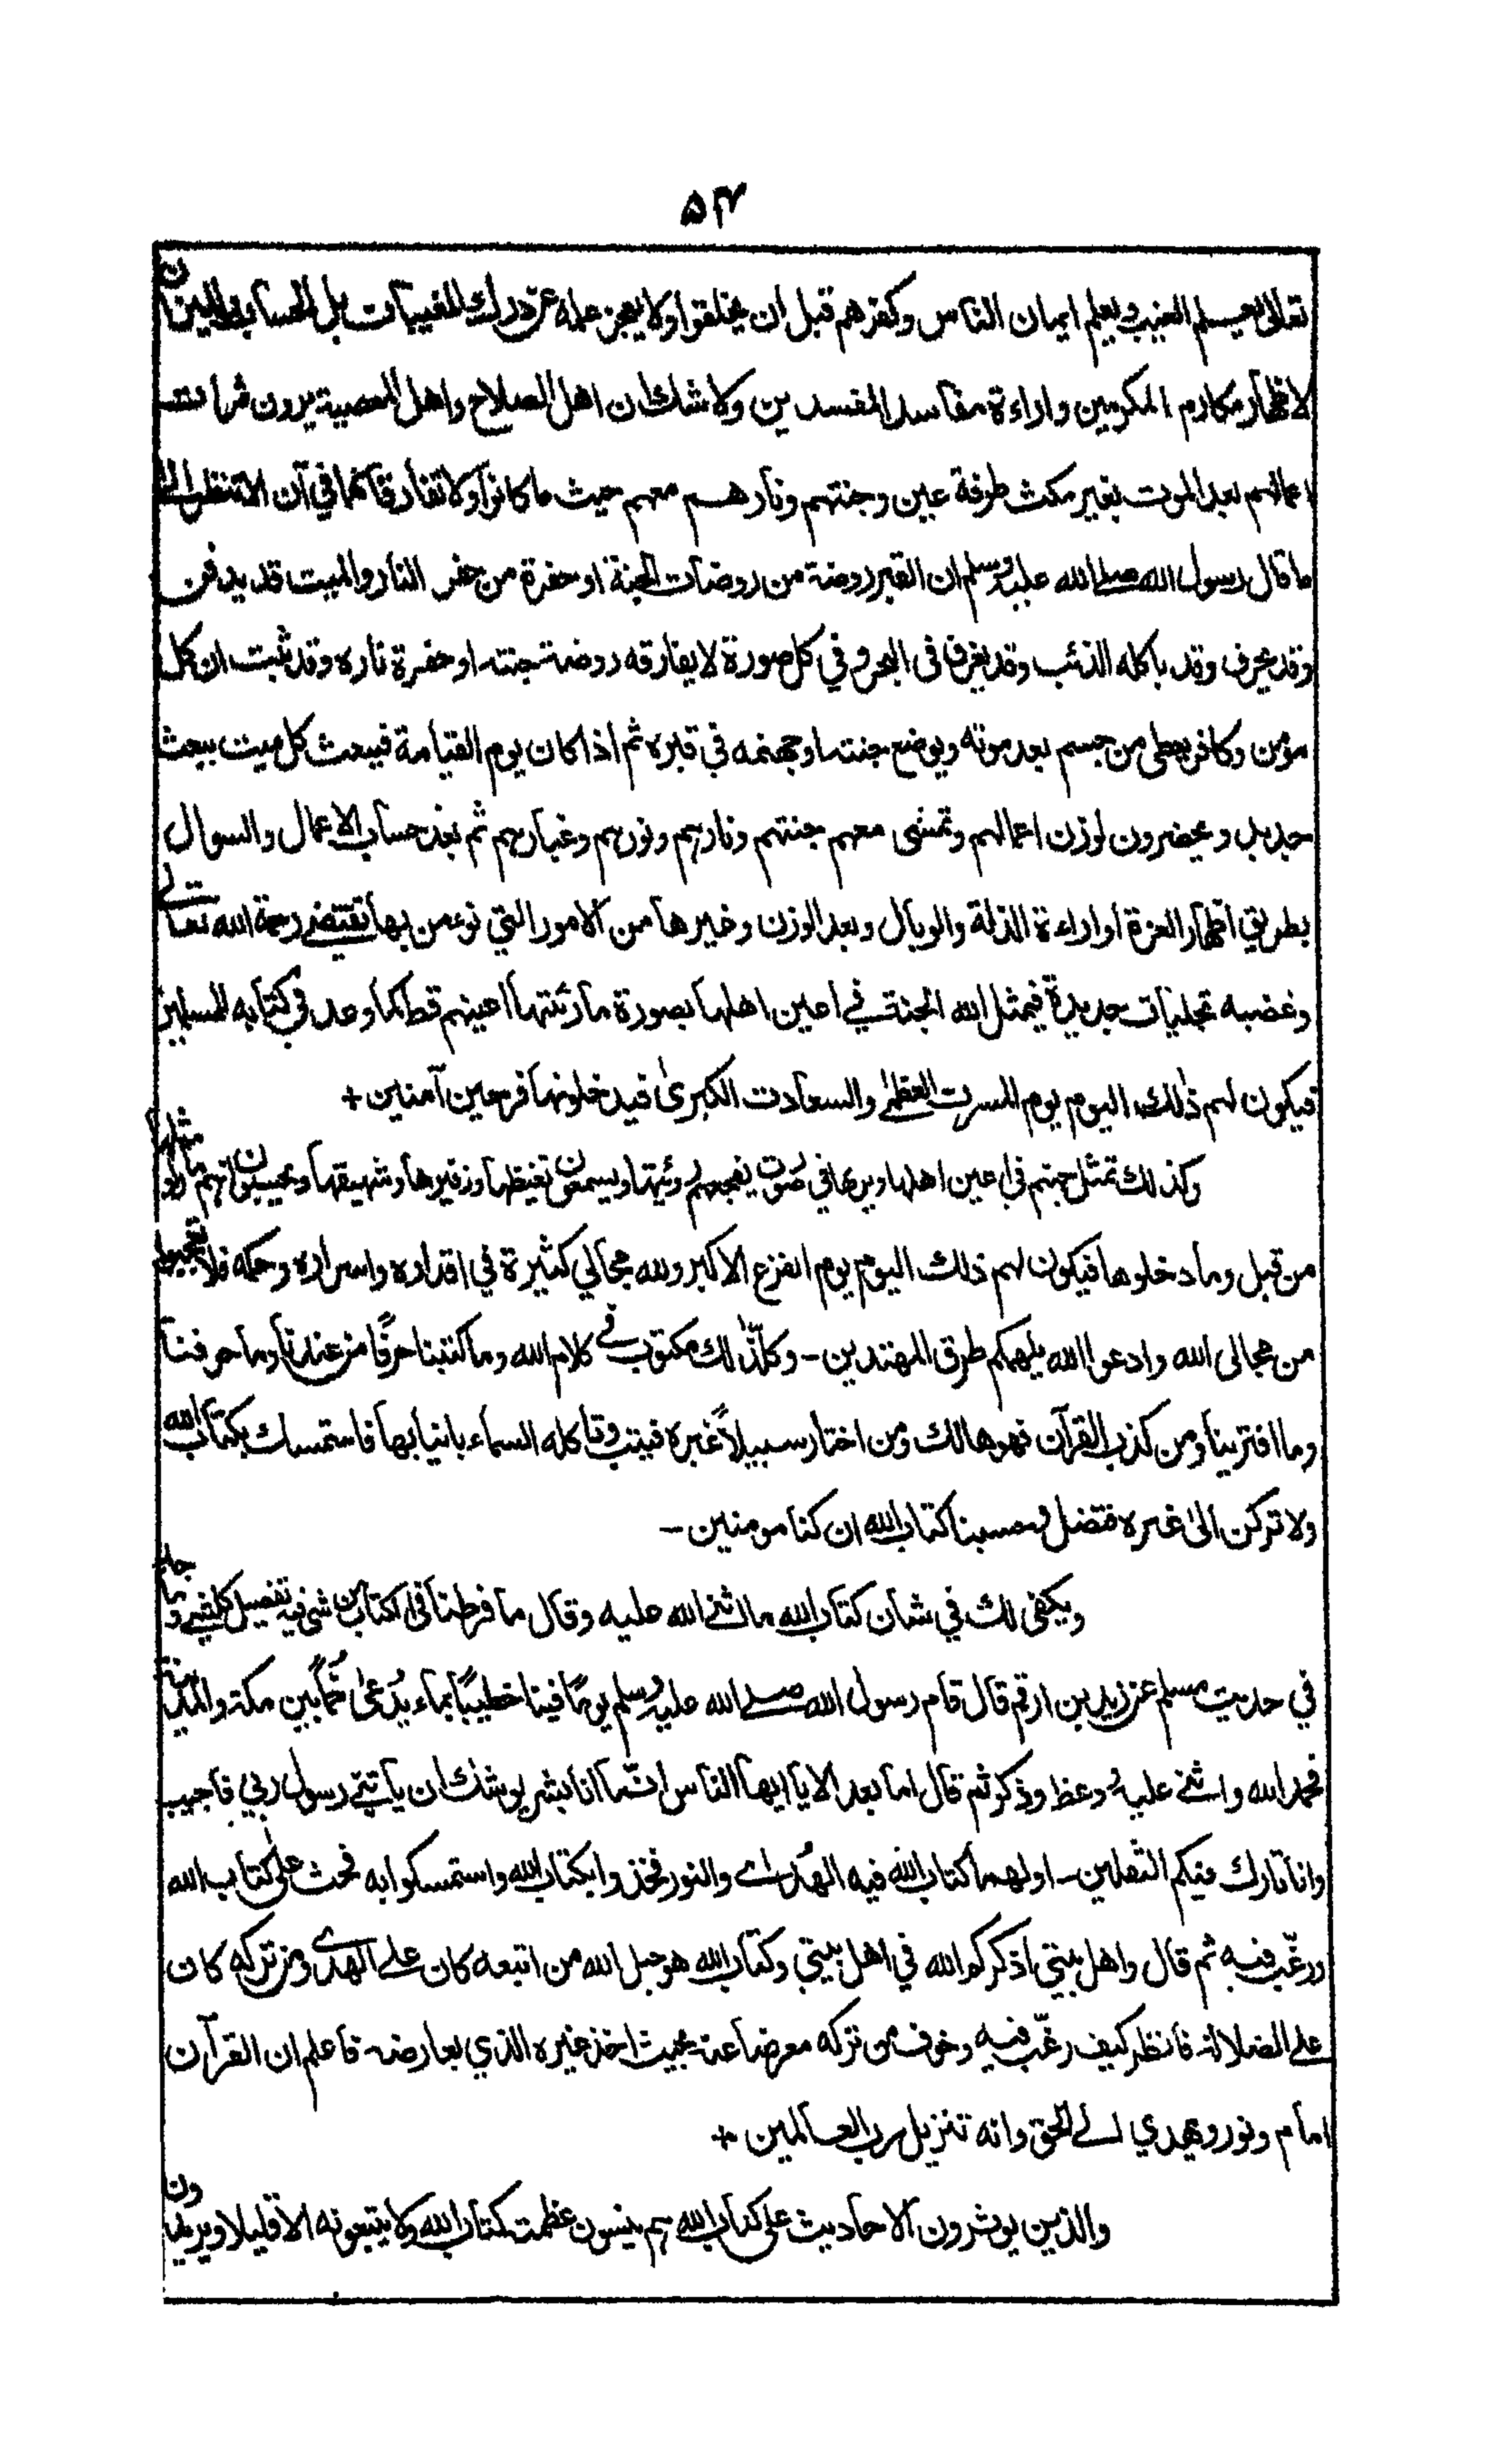 ۵۴
تعالى يعلم الغيب ويعلم ايمان الناس وكفرهم قبل ان يخلقوا ولا يعجز علمه عن درك المغيبات بل الحساب والميزان
لاظهار مكارم المكرمين واراءة مفاسد المفسدين ولا شك ان اهل الصلاح واهل المعصية يرون ثمرات
اعمالهم بعد الموت بغير مكث طرفة عين وجنتهم ونارهم معهم حيث ما كانوا ولا تفارقانهما في آن الا تنظر الى
ما قال رسول الله صلى الله عليه وسلم ان القبر روضة من روضات الجنة او حفرة من حفر النار والميت قد يدفن
وقد يحرق وقد ياكله الذئب وقد يغرق فى البحر وفي كل صورة لا يفارقه روضة جنته او حفرة ناره وقد ثبت ان كل
مؤمن وكافر يعطى من جسم بعد موته ويوضع جنته او جهنمه في قبره ثم اذا كان يوم القيامة فيبعث كل ميت ببعث
جديد ويحضرون لوزن اعمالهم وتمشى معهم جنتهم ونارهم ونورهم وغبارهم ثم بعد حساب الاعمال والسوال
بطريق اظهار العزة او اراءة الذلة والوبال وبعد الوزن وغيرها من الامور التي نؤمن بها تقتضى رحمة الله تعالى
وغضبه تجليات جديدة فيمثل الله الجنة في اعين اهلها بصورة ما رئتها اعينهم قط كما وعد فى كتابه للمسلمين
فيكون لهم ذلك اليوم يوم المسرت العظمى والسعادت الكبرىٰ فيدخلونها فرحين آمنين +
وكذلك تمثل جهنم في اعين اهلها ويريها في صورت يفجعهم رؤيتها ويسمعون تغيظها وزفيرها وشهيقها ويحسبون انهم ما رأوا مثلها
من قبل وما دخلوها فيكون لهم ذلك اليوم يوم الفزع الاكبر ولله مجالي كثيرة في اقداره واسراره وحكمه فلا تعجبوا
من مجالى الله وادعوا الله يلهمكم طرق المهتدين - وكل ذٰلك مكتوب في كلام الله وما كتبنا حرفًا من عندنا وما حرفنا
وما افترينا ومن كذب القرآن فهو هالك ومن اختار سبيلاً غيره فيتب وتاكله السماء بانيابها فاستمسك بكتاب الله
ولا تركن الىٰ غيره فتضل وحسبنا كتاب الله ان كنا مومنين -
ويكفى لك في شان كتاب الله ما اثنى الله عليه وقال ما فرطنا فى الكتاب من شئ فيه تفصيل كل شئ وما جاء
في حديث مسلم عن زيد بن ارقم قال قام رسول الله صلى الله عليه وسلم يومًا فينا خطيبًا بماء يُدعىٰ خُمًّا بين مكة والمدينة
فحمد الله واثنى عليه ووعظ وذكر ثم قال اما بعد الا يا ايها الناس انما انا بشر يوشك ان ياتيني رسول ربي فاجيب
وانا تارك فيكم الثقلين - اولهما كتاب الله فيه الهُدى والنور فخذوا بكتاب الله واستمسكوا به فحث على كتاب الله
ورغّب فيه ثم قال واهل بيتي اذكركم الله في اهل بيتي وكتاب الله هو حبل الله من اتبعه كان على الهدى ومن تركه كان
على الضلالة فانظر كيف رغّب فيه وخوف من تركه معرضا عنه بحيث اخذ غيره الذي يعارضه فاعلم ان القرآن
امام ونور ويهدي الى الحق وانه تنزيل رب العالمين +
والذين يوثرون الاحاديث على كتاب الله هم ينسون عظمت كتاب الله ولا يتبعونه الا قليلا ويريدون